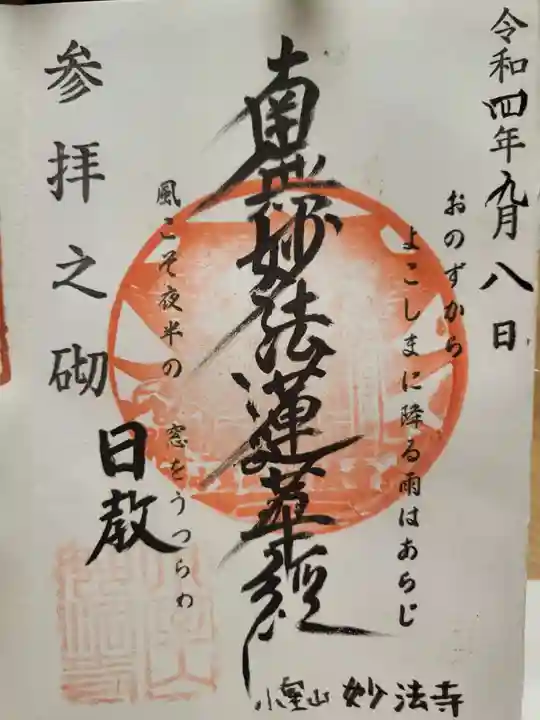 令和四年九月八日
おのずから
よこしまに降る雨はあらじ
南無妙法蓮華経
風こそ夜半の
窓をうつらめ
参拝之砌
日教
小室山 妙法寺